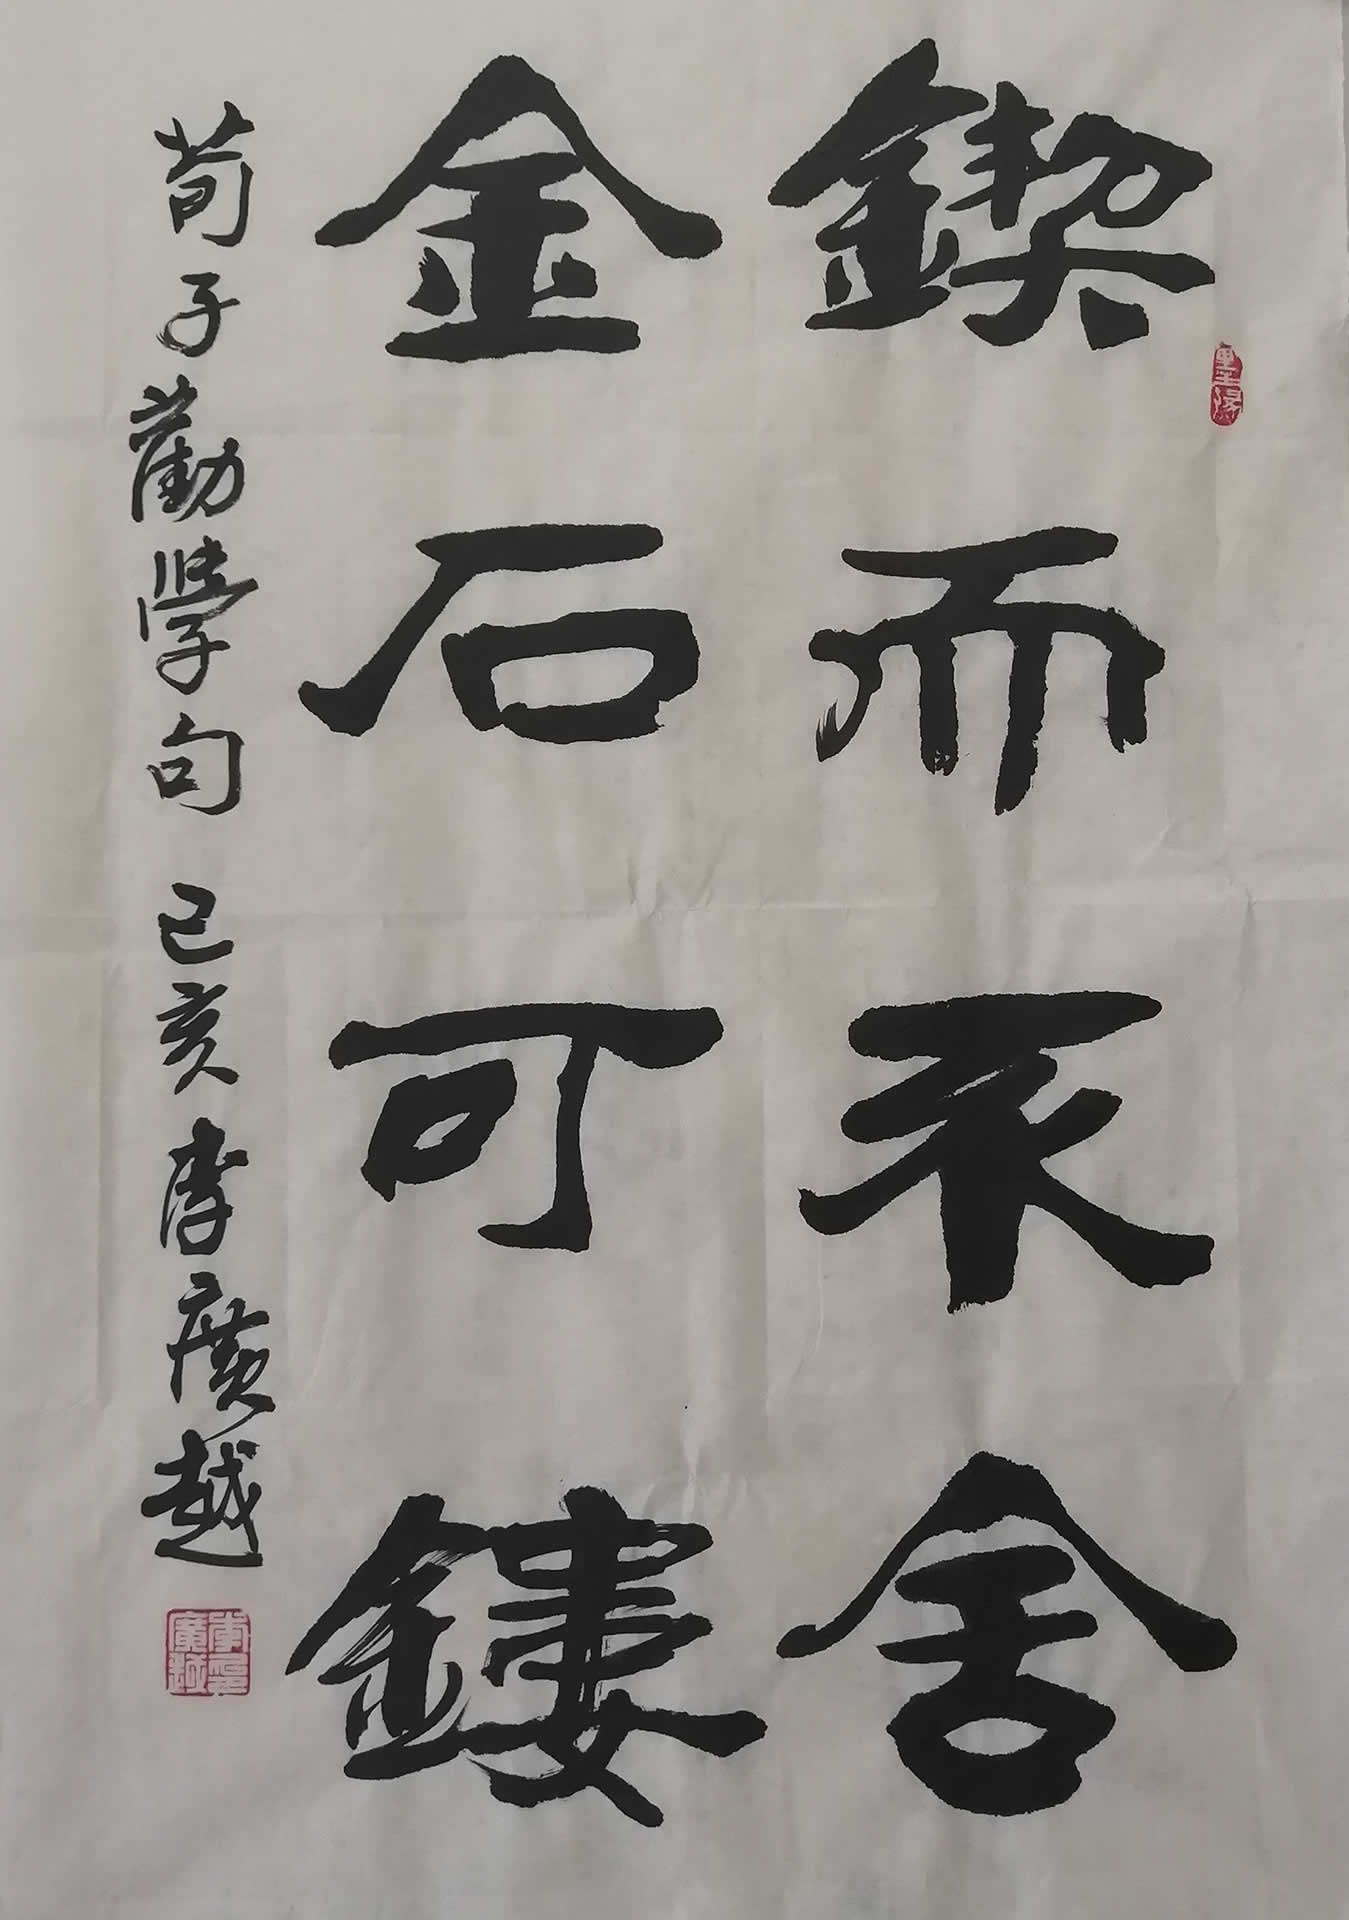 鍥而不舍
金石可鏤
荀子勸學句 己亥李廣越
李廣越印